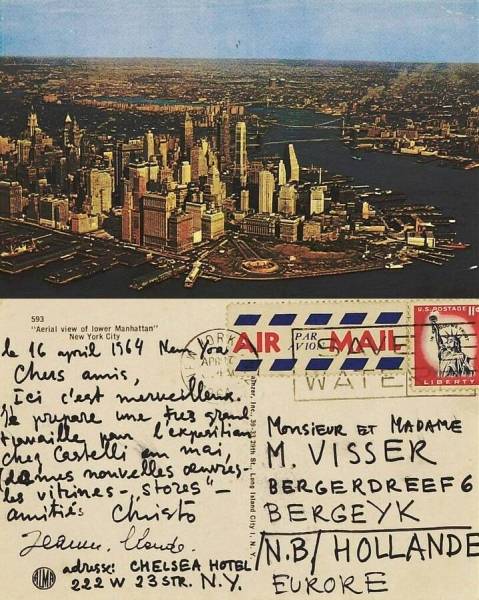 593
"Aerial view of lower Manhattan"
New York City
le 16 april 1964 New York
Chers amis,
Ici c'est merveilleux.
Je prepare une tres grand
travaille pour l'exposition
chez Castelli au mai,
mes nouvelles œuvres.
les vitrines-"stores"-
amitiés Christo
Jeanne-Claude.
adresse: CHELSEA HOTEL
222 W 23 STR. N.Y.
ALMA
39-33 29th St., Long Island City 1, N. Y.
YORK
APR 17
AIR PAR AVION MAIL
SAVE
WATER
U.S. POSTAGE 11¢
LIBERTY
MONSIEUR ET MADAME
M. VISSER
BERGERDREEF 6
BERGEYK
N.B/ HOLLANDE
EURORE